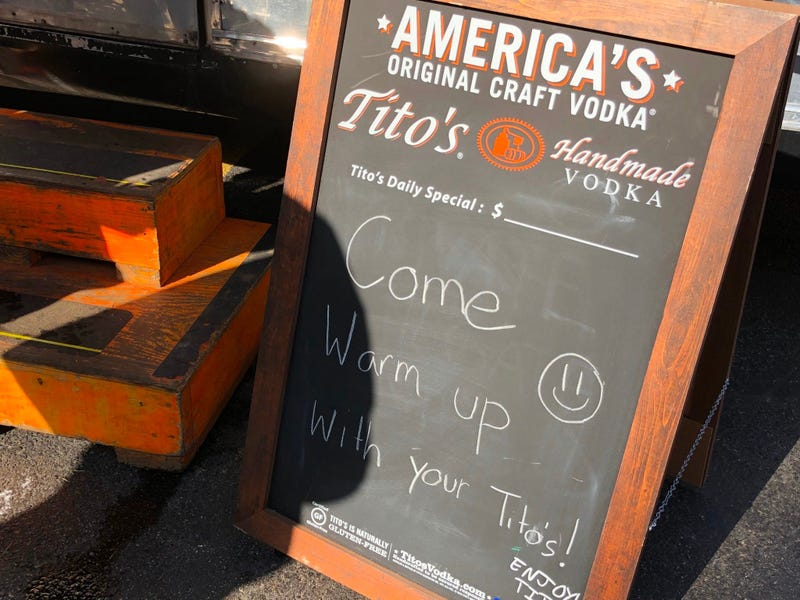 AMERICA'S
ORIGINAL CRAFT VODKA®
Tito's® Handmade
VODKA
Tito's Daily Special: $
Come
Warm up
With your Tito's!
GF
TITO'S IS NATURALLY
GLUTEN-FREE
TitosVodka.com
ENJOY